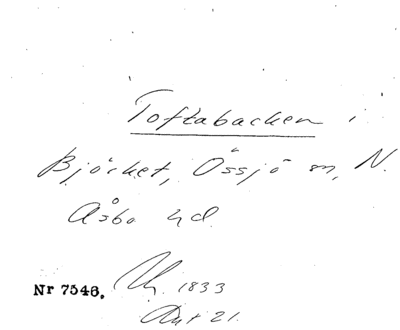 Toftabacken i
Bjäcket, Össjö sn, N.
Åsbo hd.
Nr 7546. 1833
21.